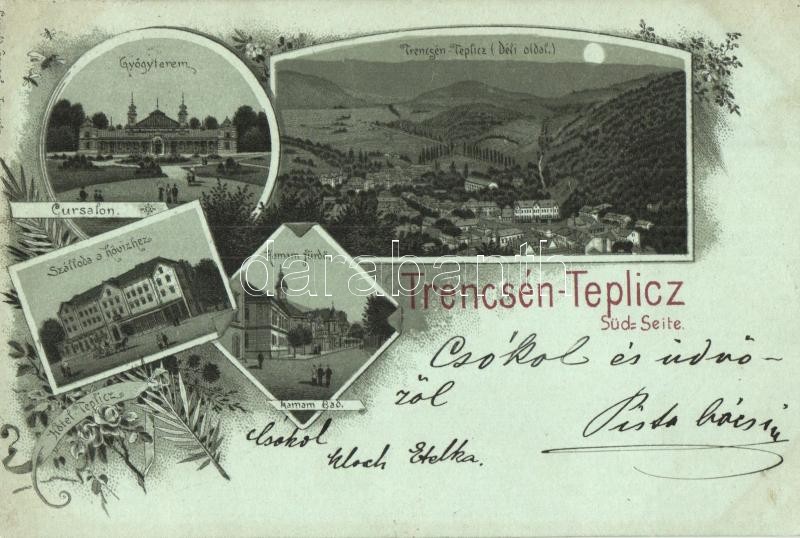 Gyógyterem
Cursalon.
Trencsén-Teplicz (Déli oldal.)
Szálloda a hővizhez
Hotel Teplicz
Hamam fürdő
Hamam Bad.
darabanth
Trencsén-Teplicz
Süd=Seite.
Csókol és üdvö-
zöl
Pista bácsi
Csokol
Etelka.